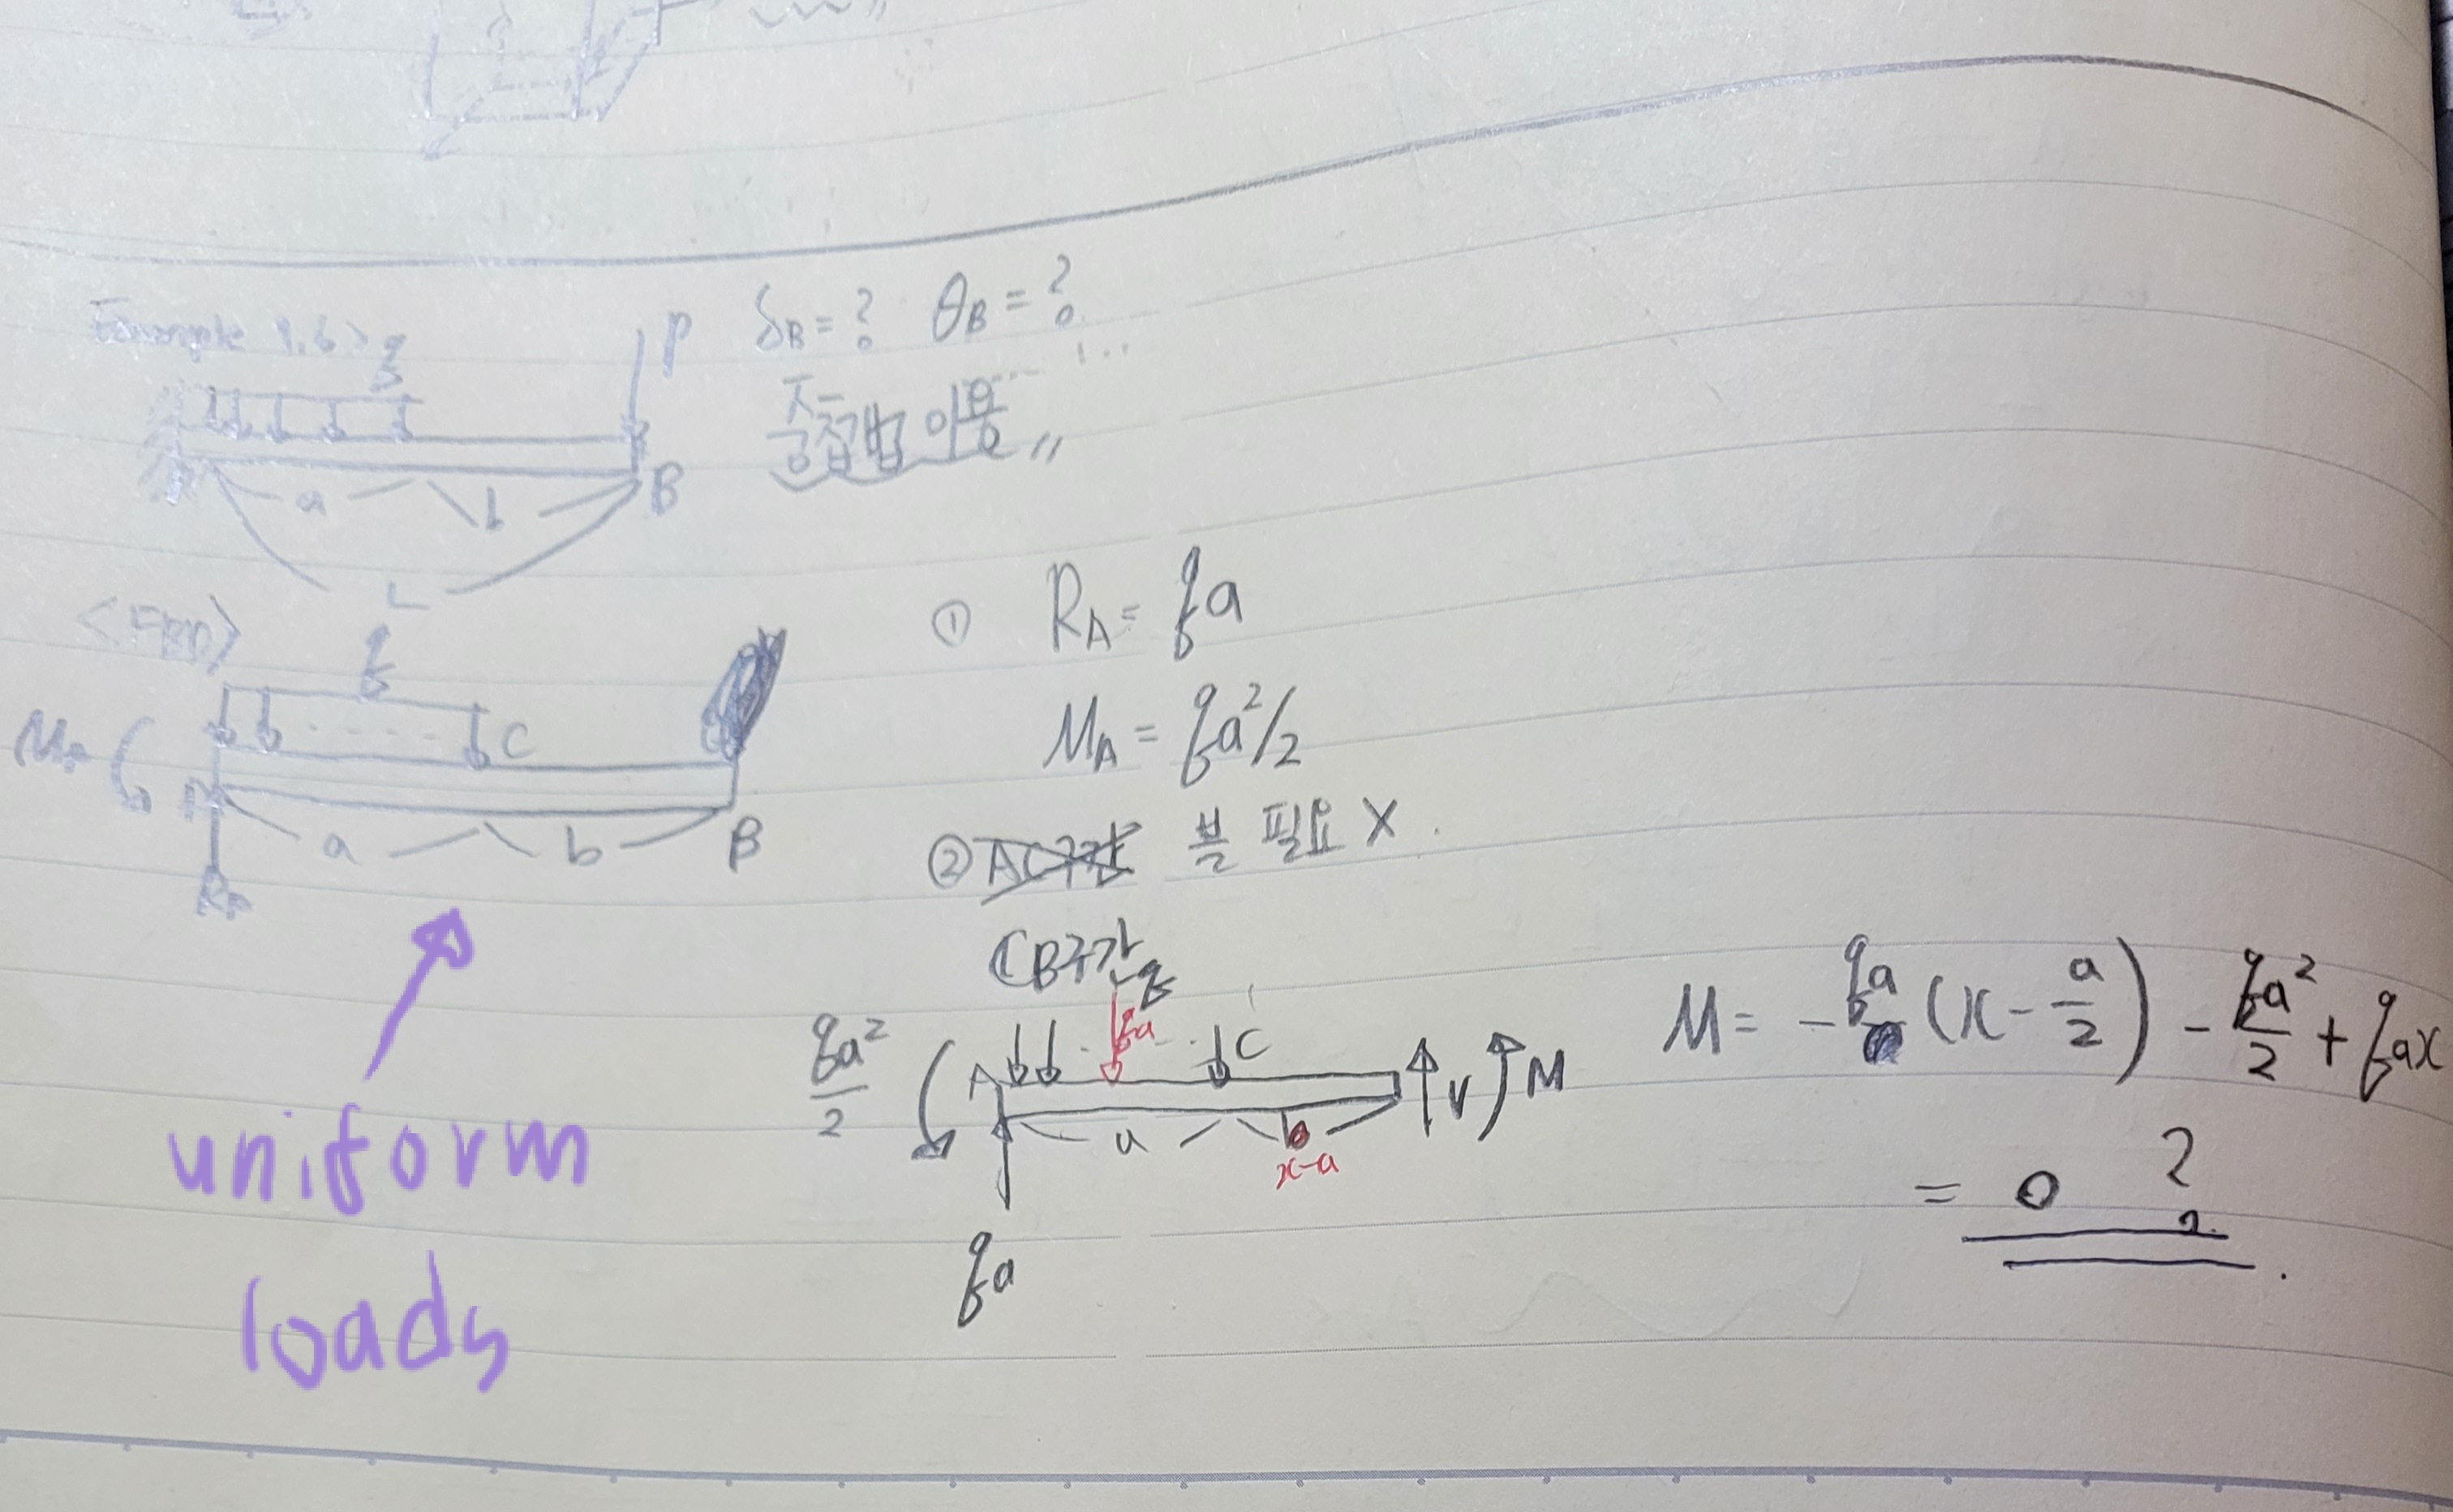 Example 9.6>
q
P
δB = ? θB = ?
중첩법 이용 〃
a
b
B
L
<FBD>
q
MA
C
A
a
b
B
RA
① RA = qa
MA = qa²/2
② AC구간 볼 필요 X.
CB구간
q
qa²/2
A
qa
C
V
M
a
x-a
qa
M = -qa(x - a/2) - qa²/2 + qax
= 0 ?
uniform
loads